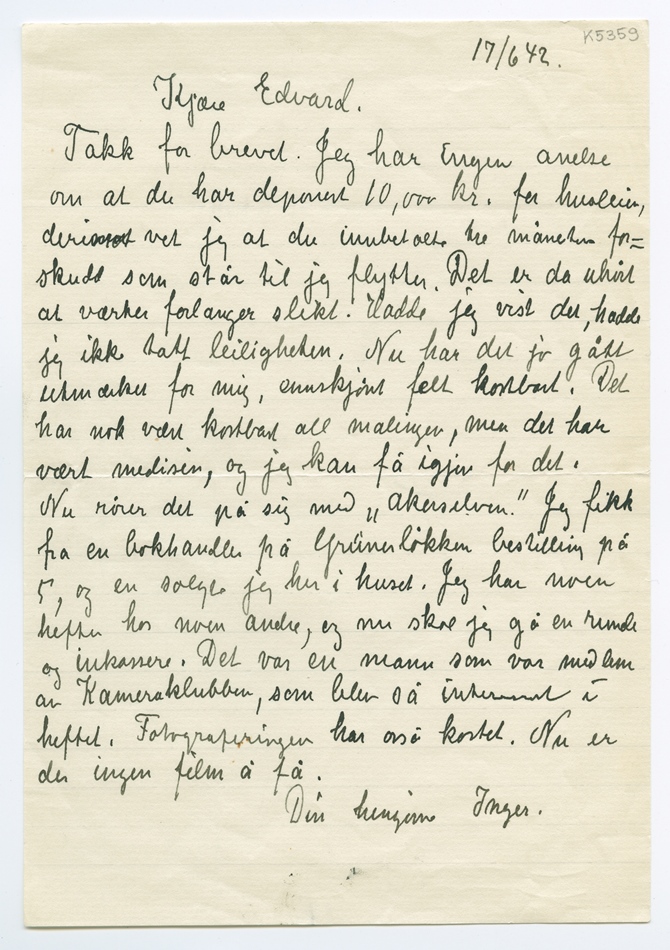 K5359
17/6 42.
Kjære Edvard.
Takk for brevet. Jeg har Engen anelse
om at du har deponert 10,000 kr. for husleien,
derimot vet jeg at du innbetalte tre måneder for=
skudd som står til jeg flytter. Det er da uhørt
at verten forlanger slikt. Hadde jeg vist det, hadde
jeg ikke tatt leiligheten. Nu har det jo gått
utmerket for mig, ennskjønt felt kostbart. Det
har nok vært kostbart all malingen, men det har
vært medisin, og jeg kan få igjen for det.
Nu rører det på sig med „Akerselven." Jeg fikk
fra en bokhandler på Grünerløkken bestilling på
5, og en solgte jeg her i huset. Jeg har noen
hefter hos noen andre, og nu skal jeg gå en runde
og inkassere. Det var en mann som var medlem
av Kameraklubben, som blev så interessert i
heftet. Fotograferingen har også kostet. Nu er
der ingen film å få.
Din hengivne Inger.